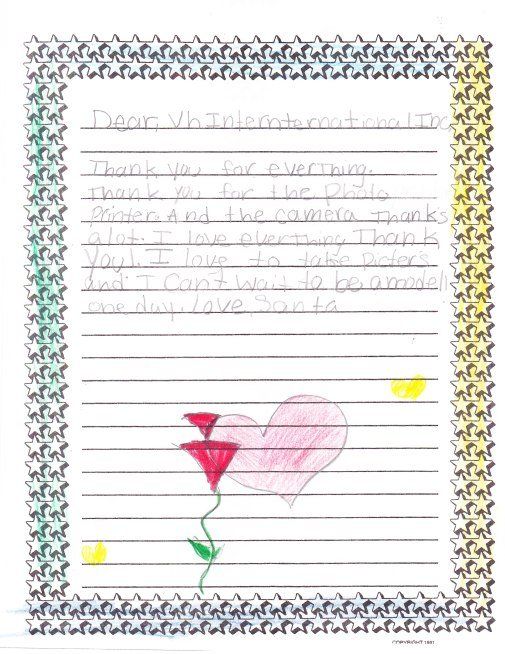 Dear, Vh Internternational Inc
Thank you for everthing.
Thank you for the Photo
Printer. And the camera Thanks
alot. I love everthing Thank
you!. I love to take Picters
and I Can't wait to be a modell
one day. Love Santa
COPYRIGHT 1991